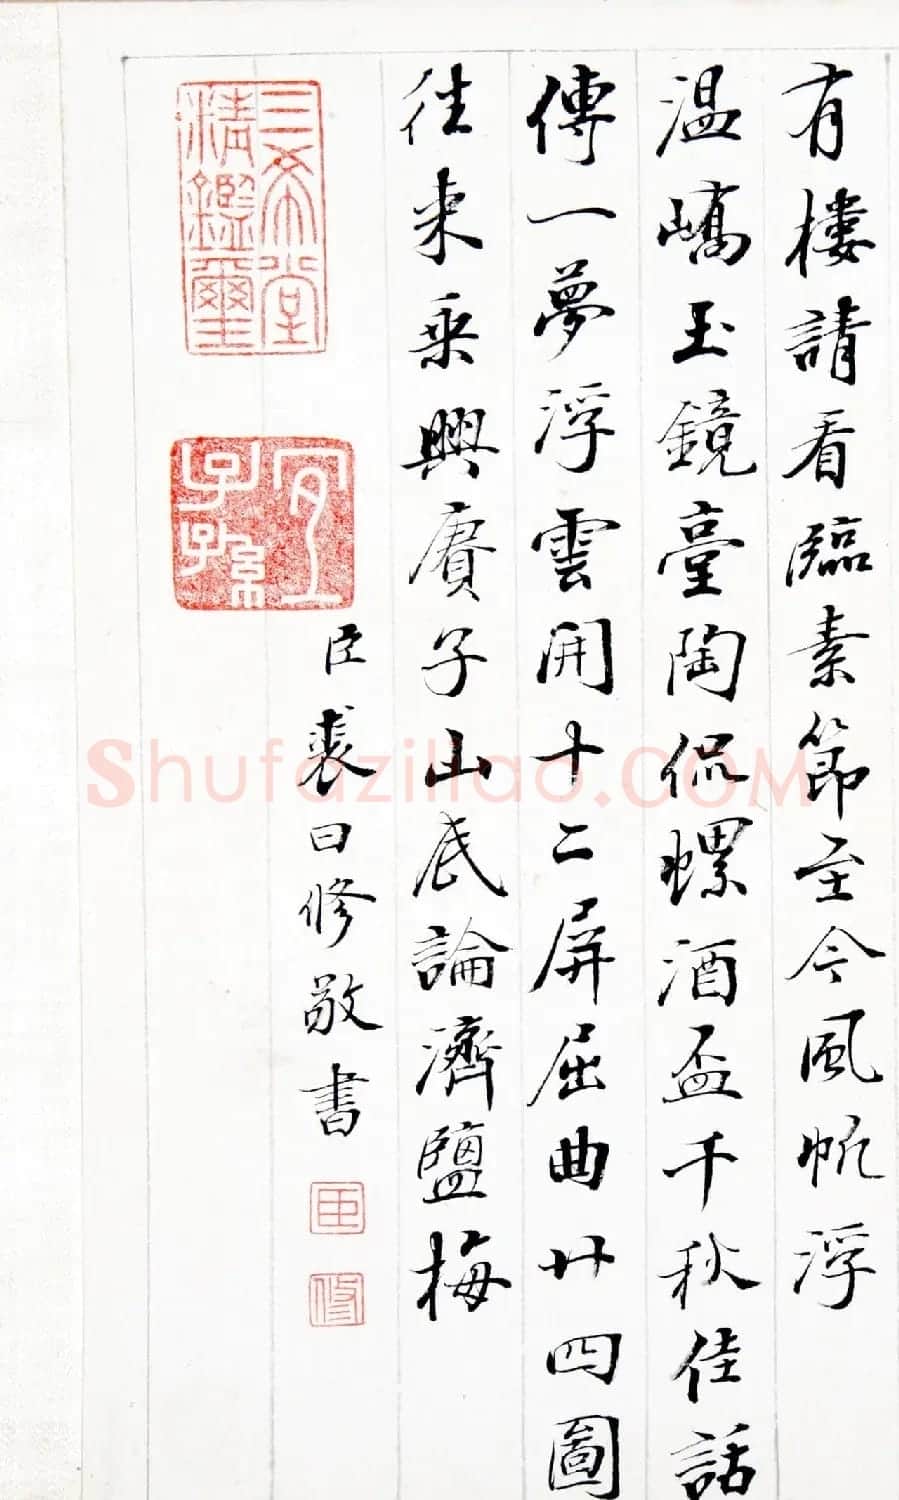 有樓請看臨素節至今風帆浮
温嶠玉鏡臺陶侃螺酒盃千秋佳話
傳一夢浮雲開十二屏屈曲廿四圖
往來乗興賡子山底論濟鹽梅
臣裘曰修敬書
三希堂
精鑑璽
宜
子孫
臣
修
Shufaziliao.COM